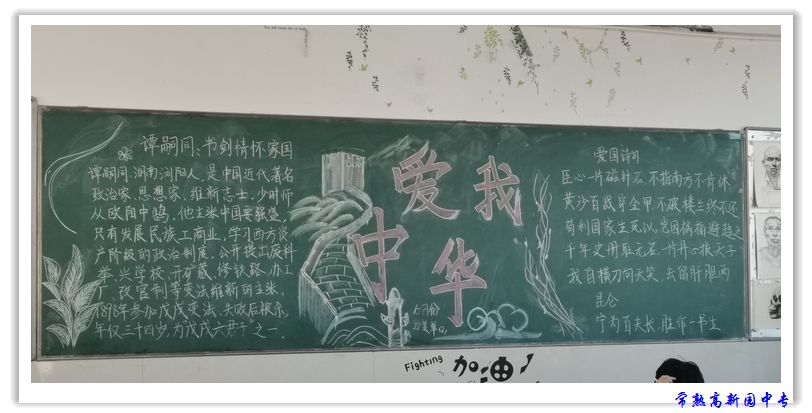 谭嗣同：书剑情怀家国
谭嗣同，湖南浏阳人，是中国近代著名
政治家、思想家，维新志士。少时师
从欧阳中鹄，他主张中国要强盛，
只有发展民族工商业，学习西方资
产阶级的政治制度。公开提出废科
举，兴学校，开矿藏，修铁路，办工
厂，改官制等变法维新的主张。
1898年参加戊戌变法，失败后被杀，
年仅三十四岁，为"戊戌六君子"之一。
爱我
中华
6月份
爱国诗句
臣心一片磁针石，不指南方不肯休
黄沙百战穿金甲，不破楼兰终不还
苟利国家生死以，岂因祸福避趋之
千年史册耻无名，一片丹心报天子
我自横刀向天笑，去留肝胆两
昆仑
宁为百夫长，胜作一书生
Fighting
加油！
常熟高新园中专